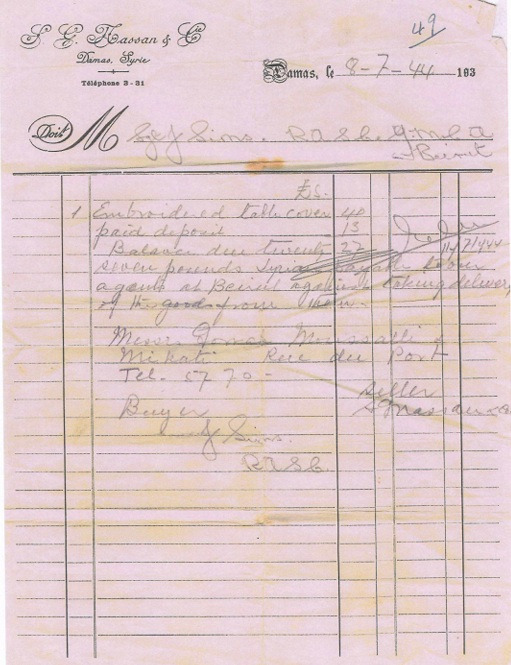 49
S. G. Hassan & Cie
Damas, Syrie
Téléphone 3-31
Damas, le 8-7-44 193
Doit M Sims. R.A.S.C.
Beirut
£S.
1 Embroidered table cover 40
paid deposit 13
Balance due twenty 27
11/7/1944
seven pounds Syrian payable to our
agent at Beirut against taking delivery
of the goods from them.
Messrs Moussalli &
Mikati Rue du Port
Tel. 5770-
Seller
Buyer
Sims.
R.A.S.C.